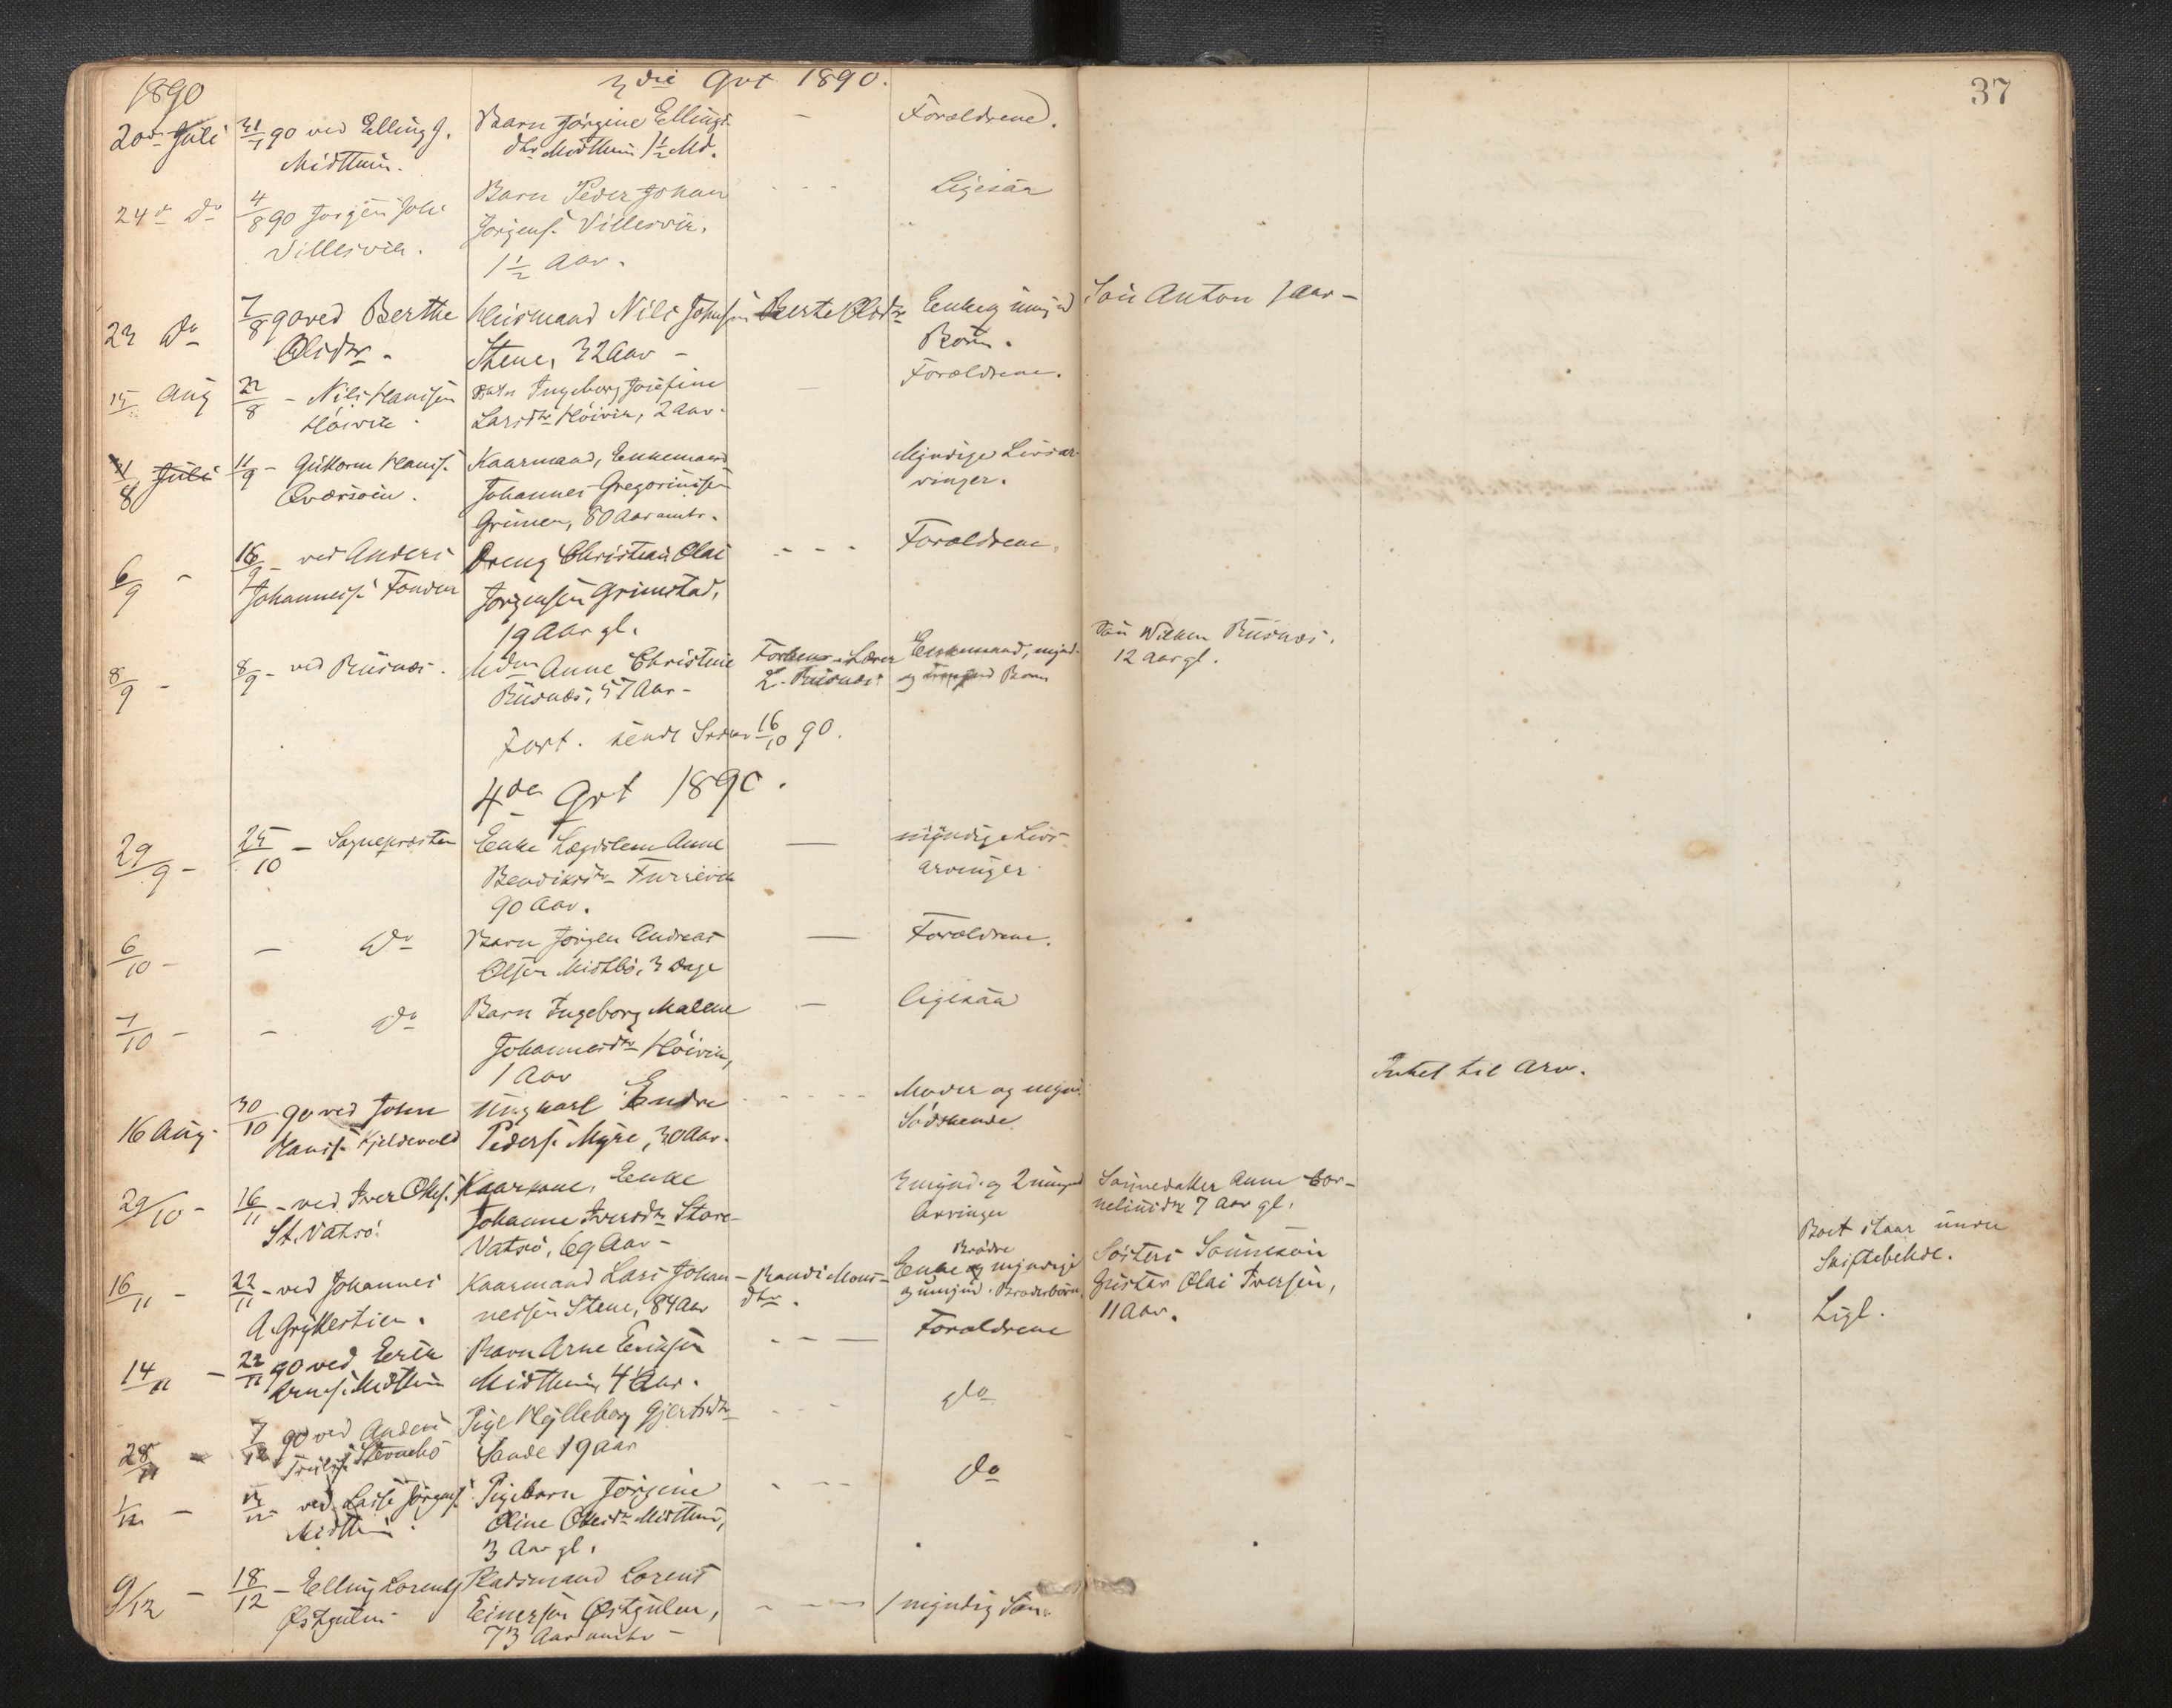 37
1890
3die Qvt 1890.
20de Juli
31/7 90 ved Elling J.
Midtthun.
Barn Jørgine Ellings
dtr Midtthun 1 1/2 Md.
Forældrene.
24de Do
4/8 90 Jørgen Joh.
Villesvik.
Barn Peder Johan
Jørgens. Villesvik.
1 1/2 Aar.
Ligesaa
23 Do
7/8 90 ved Berthe
Olsdtr.
Husmand Nils Johnsen
Stene, 32 Aar -
Berte Olsdtr
Enke og umynd
Børn.
Søn Anton 1 Aar -
15 Aug
22/8 - Nils Hansen
Høivik.
Barn Ingeborg Josefine
Larsdtr Høivik, 2 Aar.
Forældrene.
/8 Juli
11/9 - Guttorm Hans.
Kaarmand, Enkemand
Johannes Gregoriussen
Grimen, 80 Aar omtr.
Myndige Livsar-
vinger.
6/9 -
16/9 - ved Anders
Johanness. Fonden
Dreng Christian Olai
Jørgensen Grimstad,
19 Aar gl.
Forældrene.
8/9 -
8/9 - ved Risnæs.
Mdm Anne Christine
Risnæs, 57 Aar -
L. Risnæs
Enkemand, mynd.
og umynd Børn
Søn Wilhem Risnæs.
12 Aar gl.
Fort. sendt 16/10 90.
4de Qvt 1890.
29/9 -
25/10 - Sognepresten
Enke Lægdslem Anne
Bendiksdtr Furrevik
90 Aar.
myndige Livs-
arvinger
6/10 -
- Do
Barn Jørgen Andreas
Olsen Midtbø, 3 Dage
Forældrene.
7/10 -
- Do
Barn Ingeborg Malene
Johannesdtr Høivik,
1 Aar
ligesaa
16 Aug.
30/10 90 ved John
Hans. Kjeldevold
Ungkarl Endre
Peders. Myre, 30 Aar.
Moder og mynd.
Södskende
Intet til Arv.
29/10 -
16/11 - ved Iver Ols.
St. Vatsø.
Kaarkone, Enke
Johanne Iversdtr Store-
Vatsø, 69 Aar -
3 mynd. og 2 umynd
Arvinger
Sønnedatter Anne Cor-
neliusdtr 7 Aar gl.
Boet staar under
Skiftebehdl.
16/11 -
22/11 - ved Johannes
A. Gryttestien.
Kaarmand Lars Johan-
nessen Stene, 84 Aar
Randi Mons-
dtr.
Brødre
Enke og myndige
og umynd. Broderbørn.
Søsters Sønnesøn
Gustav Olai Iversen,
11 Aar.
Ligl.
14/11 -
22/11 90 ved Erik
Arnes. Midtthun
Barn Arne Eriksen
Midtthun, 4 Aar.
Forældrene
28/11 -
7/12 90 ved Anders
Pige Hylleborg Gjertsdtr
Sande 19 Aar
do
1/12 -
ved Lasse Jørgens.
Midtthun.
Pigebarn Jørgine
Oline Olsdtr Midtthun,
3 Aar gl.
do
9/12 -
18/12 - Elling Lorents
Østgulen
Pladsmand Lorents
Einersen Østgulen,
73 Aar omtr -
1 myndig Søn.